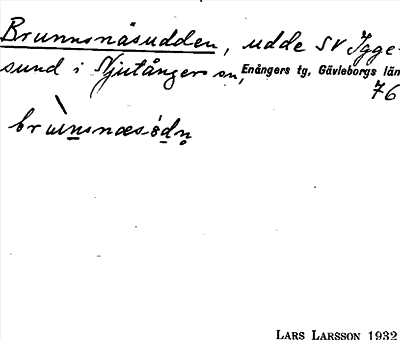 Brunnsnäsudden, udde SV Igge-
sund i Njutånger sn, Enångers tg, Gävleborgs län
76
brùnsnæs-ódn̥
LARS LARSSON 1932